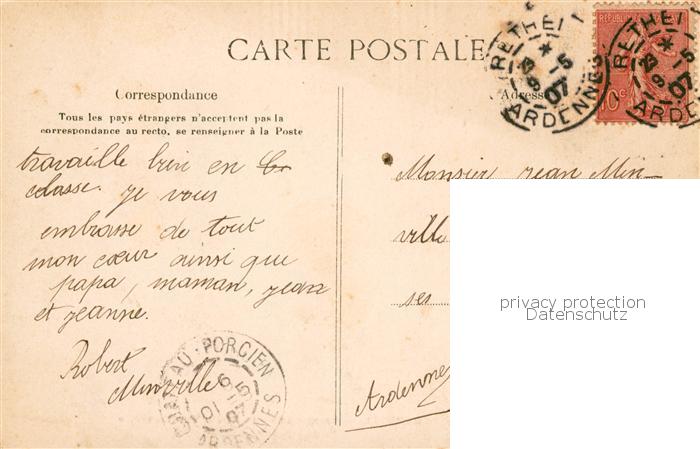 CARTE POSTALE
Correspondance
Tous les pays étrangers n'acceptent pas la
correspondance au recto, se renseigner à la Poste
travaille bien en
classe. je vous
embrasse de tout
mon cœur ainsi que
papa, maman, jean
et jeanne.
Robert
Minville
CHATEAU-PORCIEN
ARDENNES
Adresse
Monsieur jean Min-
ville
ses
Ardennes
RETHEL
5
07
ARDENNES
RETHEL
5
07
ARDENNES
10c
privacy protection
Datenschutz